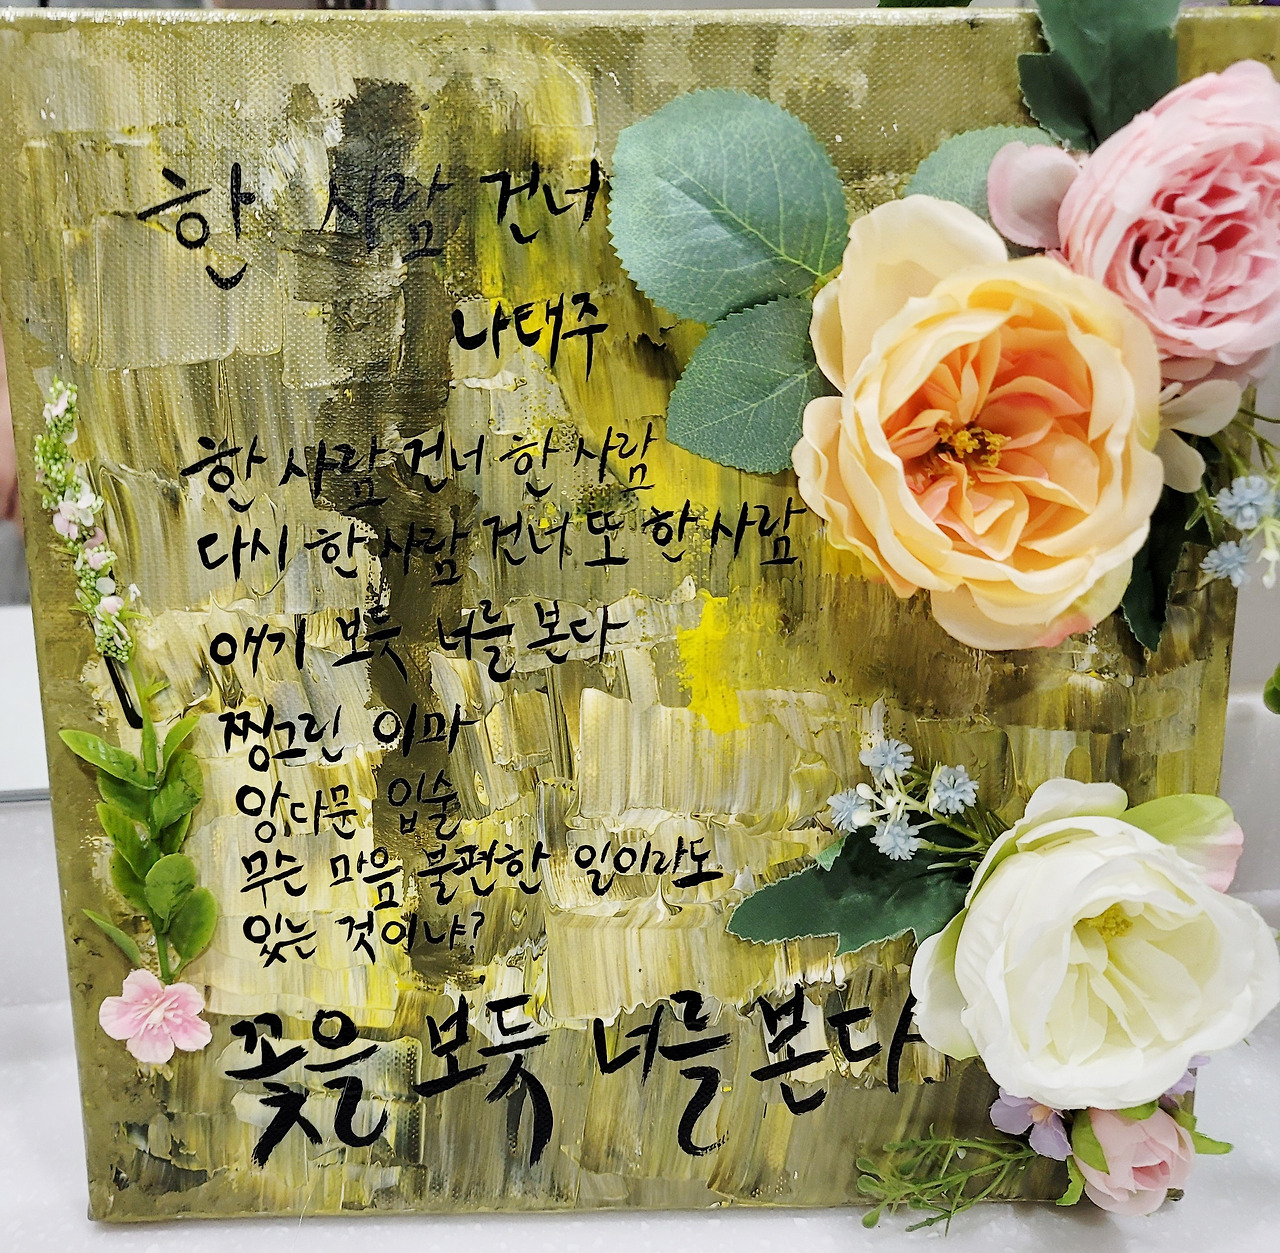 한 사람 건너
나태주
한 사람 건너 한 사람
다시 한 사람 건너 또 한 사람
애기 보듯 너를 본다
찡그린 이마
앙다문 입술
무슨 마음 불편한 일이라도
있는 것이냐?
꽃을 보듯 너를 본다.